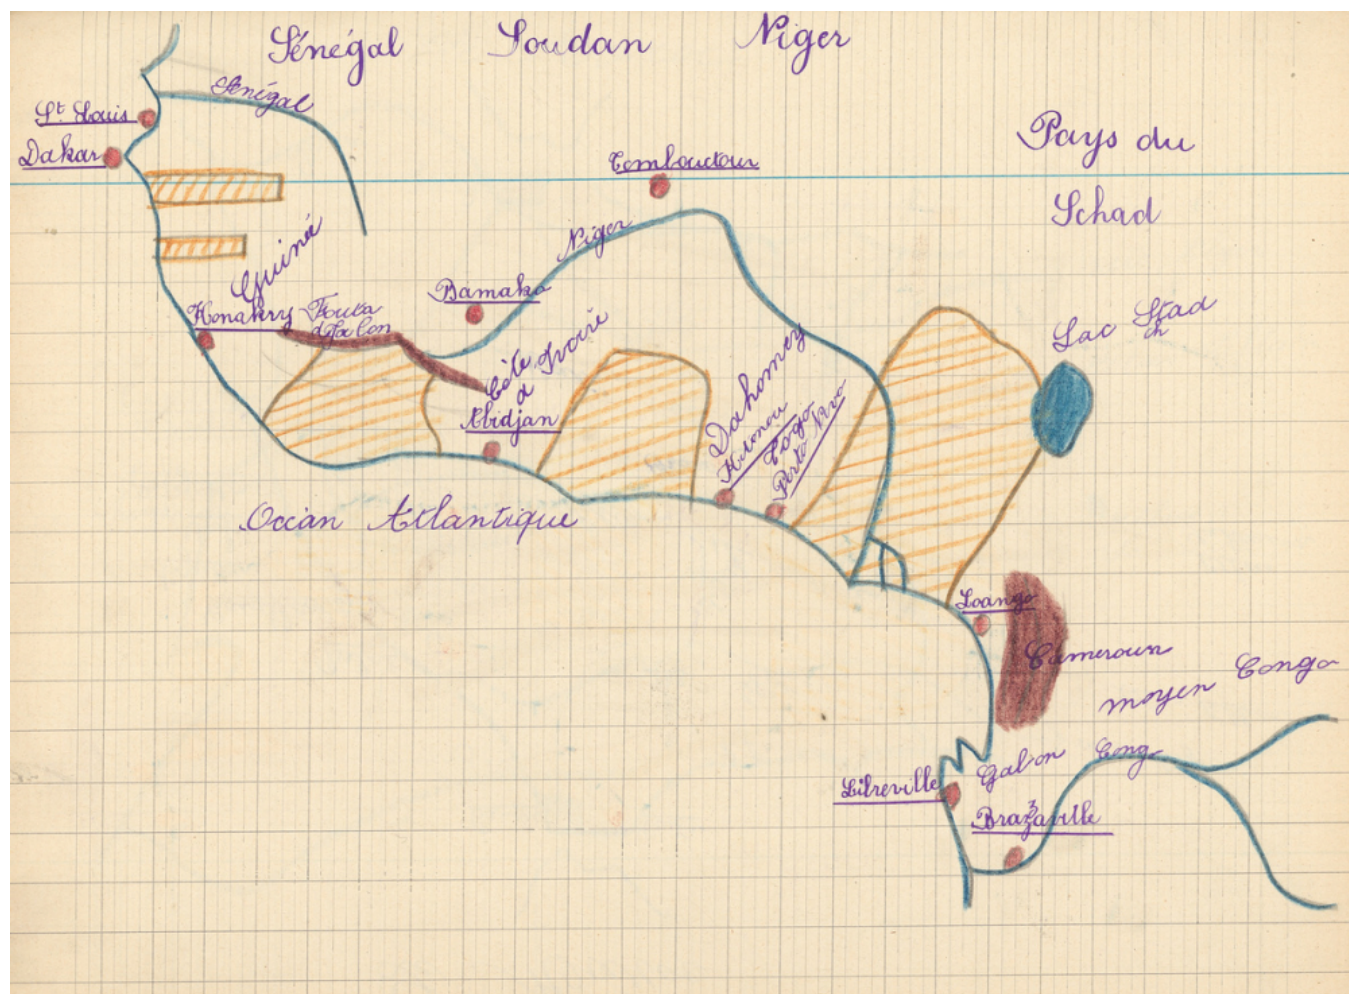 Sénégal Soudan Niger
Sénégal
St Louis
Dakar
Tombouctou
Pays du
Schad
Niger
Guinée
Bamako
Konakry
Fouta
djalon
Lac Stad
ch
Côte
d
Ivoire
Abidjan
Dahomey
Togo
Porto Novo
Océan Atlantique
Loango
Cameroun
moyen Congo
Gabon
Cong
Libreville
Brazaville
z